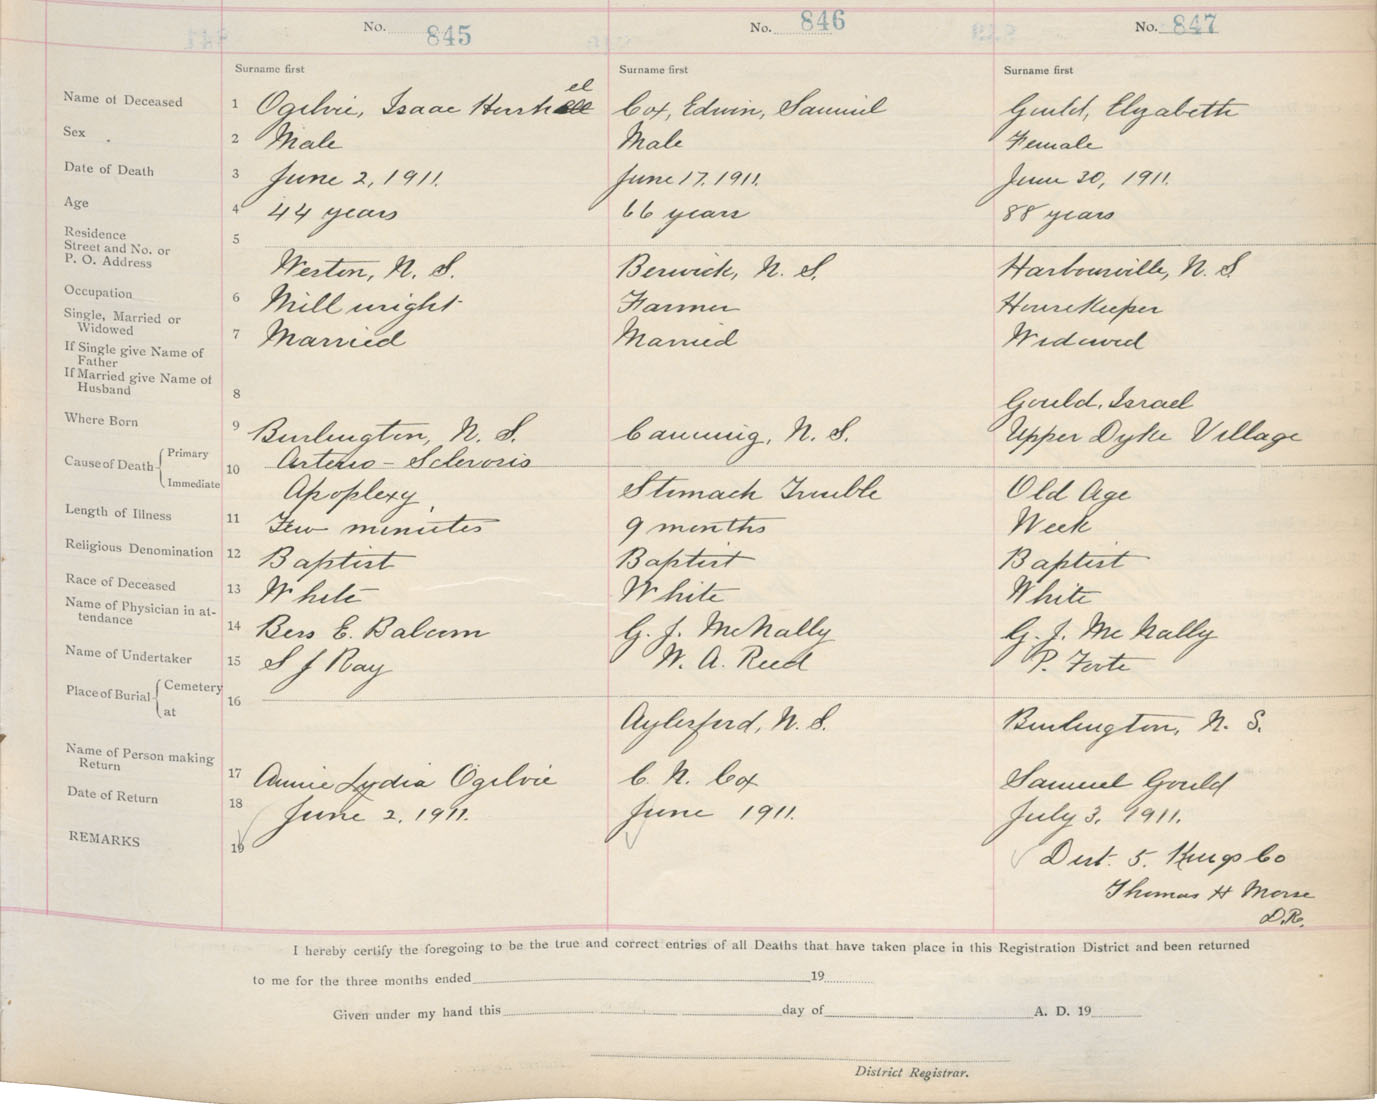 No. 845 No. 846 No. 847
Surname first Surname first Surname first
Name of Deceased 1 Ogilvie, Isaac Hershel Cox, Edwin, Samuel Gould, Elizabeth
Sex 2 Male Male Female
Date of Death 3 June 2, 1911. June 17, 1911. June 30, 1911.
Age 4 44 years 66 years 88 years
Residence 5
Street and No. or
P. O. Address Weston, N. S. Berwick, N. S. Harbourville, N. S.
Occupation 6 Mill wright Farmer HouseKeeper
Single, Married or
Widowed 7 Married Married Widowed
If Single give Name of
Father
If Married give Name of
Husband 8 Gould, Israel
Where Born 9 Burlington, N. S. Canning, N. S. Upper Dyke Village
Cause of Death Primary 10 Arterio - Sclerosis
Immediate Apoplexy Stomach Trouble Old Age
Length of Illness 11 Few minutes 9 months Week
Religious Denomination 12 Baptist Baptist Baptist
Race of Deceased 13 White White White
Name of Physician in at-
tendance 14 E. Balcom G. J. McNally G. J. McNally
Name of Undertaker 15 S J Ray W. A. Reed P. Foote
Place of Burial Cemetery 16
at Aylesford, N. S. Burlington, N. S.
Name of Person making
Return 17 Annie Lydia Ogilvie C. N. Cox Samuel Gould
Date of Return 18 June 2, 1911. June 1911. July 3, 1911.
REMARKS 19 Dist. 5. Kings Co
Thomas H Morse
D.R.
I hereby certify the foregoing to be the true and correct entries of all Deaths that have taken place in this Registration District and been returned
to me for the three months ended 19
Given under my hand this day of A. D. 19
District Registrar.